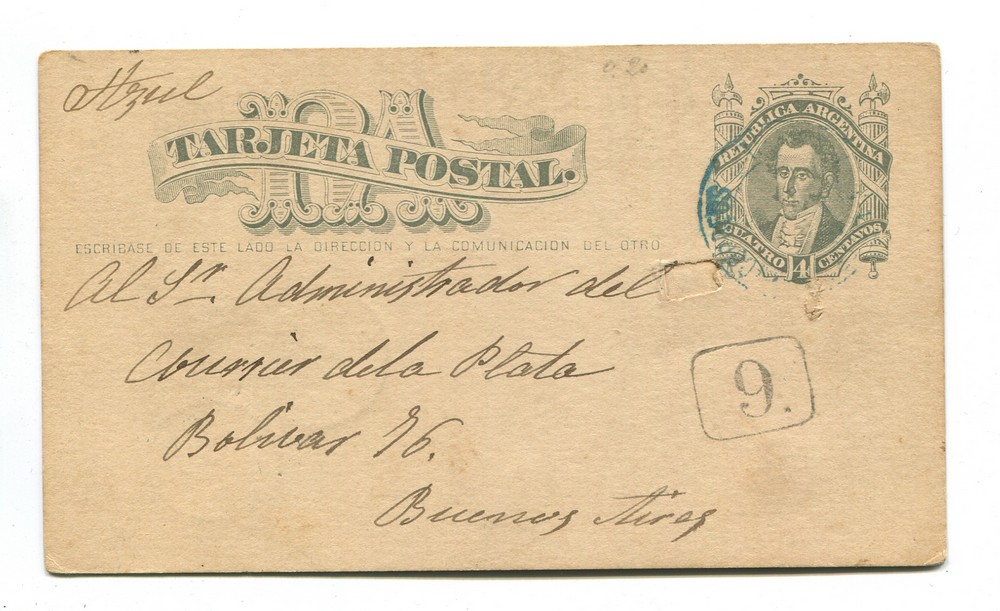 Azul
c. 20
RA
TARJETA POSTAL.
REPUBLICA ARGENTINA
CUATRO 4 CENTAVOS
ESCRIBASE DE ESTE LADO LA DIRECCION Y LA COMUNICACION DEL OTRO
Al Sr. Administrador del
Courrier de la Plata
Bolivar 76.
9.
Buenos Aires